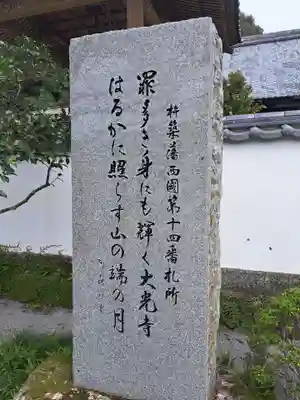 杵築藩西國第十四番札所
罪多き身にも輝く大光寺
はるかに照らす山の端の月